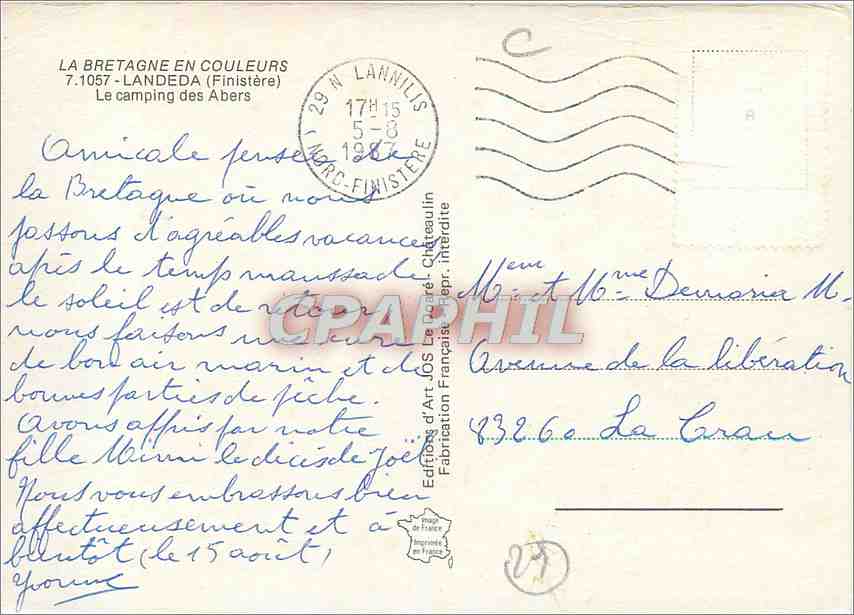 LA BRETAGNE EN COULEURS
7.1057 - LANDEDA (Finistère)
Le camping des Abers
29 N LANNILIS
17H15
5-8
1987
NORD-FINISTERE
Amicale pensée de
la Bretagne où nous
passons d'agréables vacances,
après le temps maussade,
le soleil est de retour,
nous faisons une cure
de bon air marin et de
bonnes parties de pêche.
Avons appris par notre
fille Mimi le décès de Joël.
Nous vous embrassons bien
affectueusement et à
bientôt (le 15 août)
Yvonne
Editions d'Art JOS Le Doaré - Châteaulin
Fabrication Française - Repr. interdite
Image
de France
Imprimée
en France
C
8
Mr et Mme Demaria M.
Avenue de la libération
83260 La Crau
29
CPAPHIL